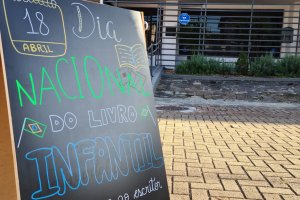 18
ABRIL
Dia
NACIONAL
DO LIVRO
INFANTIL
escritor